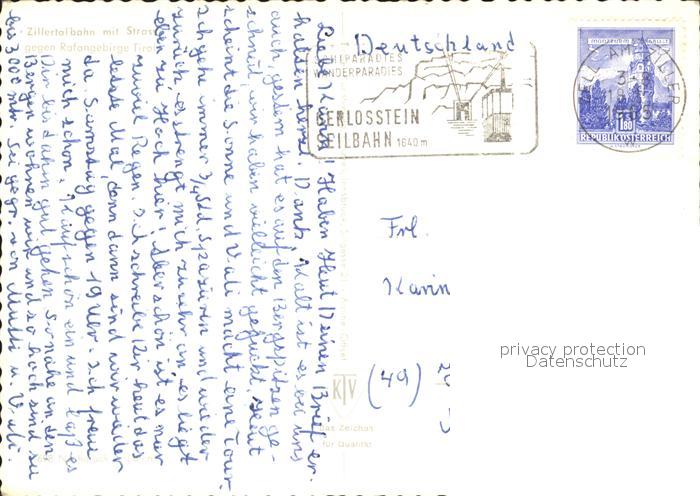 Zillertalbahn mit Strass
gegen Rofangebirge Tirol
Deutschland
SCHIPARADIES
WANDERPARADIES
GERLOSSTEIN
SEILBAHN 1640 m
ZELL AM ZILLER
1.80
REPUBLIK ÖSTERREICH
Haben Heut Deinen Brief er-
halten herzl. Dank, Kalt ist es bei uns
auch, gestern hat es auf den Bergspitzen ge-
schneit, wir haben vielleicht geguckt. Heut
scheint die Sonne und Vati macht eine Tour
Ich gehe immer 3/4 Std. spazieren und wieder
zurück, es strengt mich zu sehr an, es liegt
eben zu hoch hier! Aber schön ist es nur
zuviel Regen. Ich schreibe Dir heut das
letzte Mal, denn dann sind wir wieder
da. Samstag gegen 19 Uhr. Ich freue
mich schon. Kauf schön ein und laß es
Dir bis dahin gut gehen. So nahe an den
Bergen wohnen wir und so hoch sind sie
Sei gegr. von Mutti u. Vati.
Frl.
Karin
(49)
KTV
Das Zeichen
für Qualität
privacy protection
Datenschutz